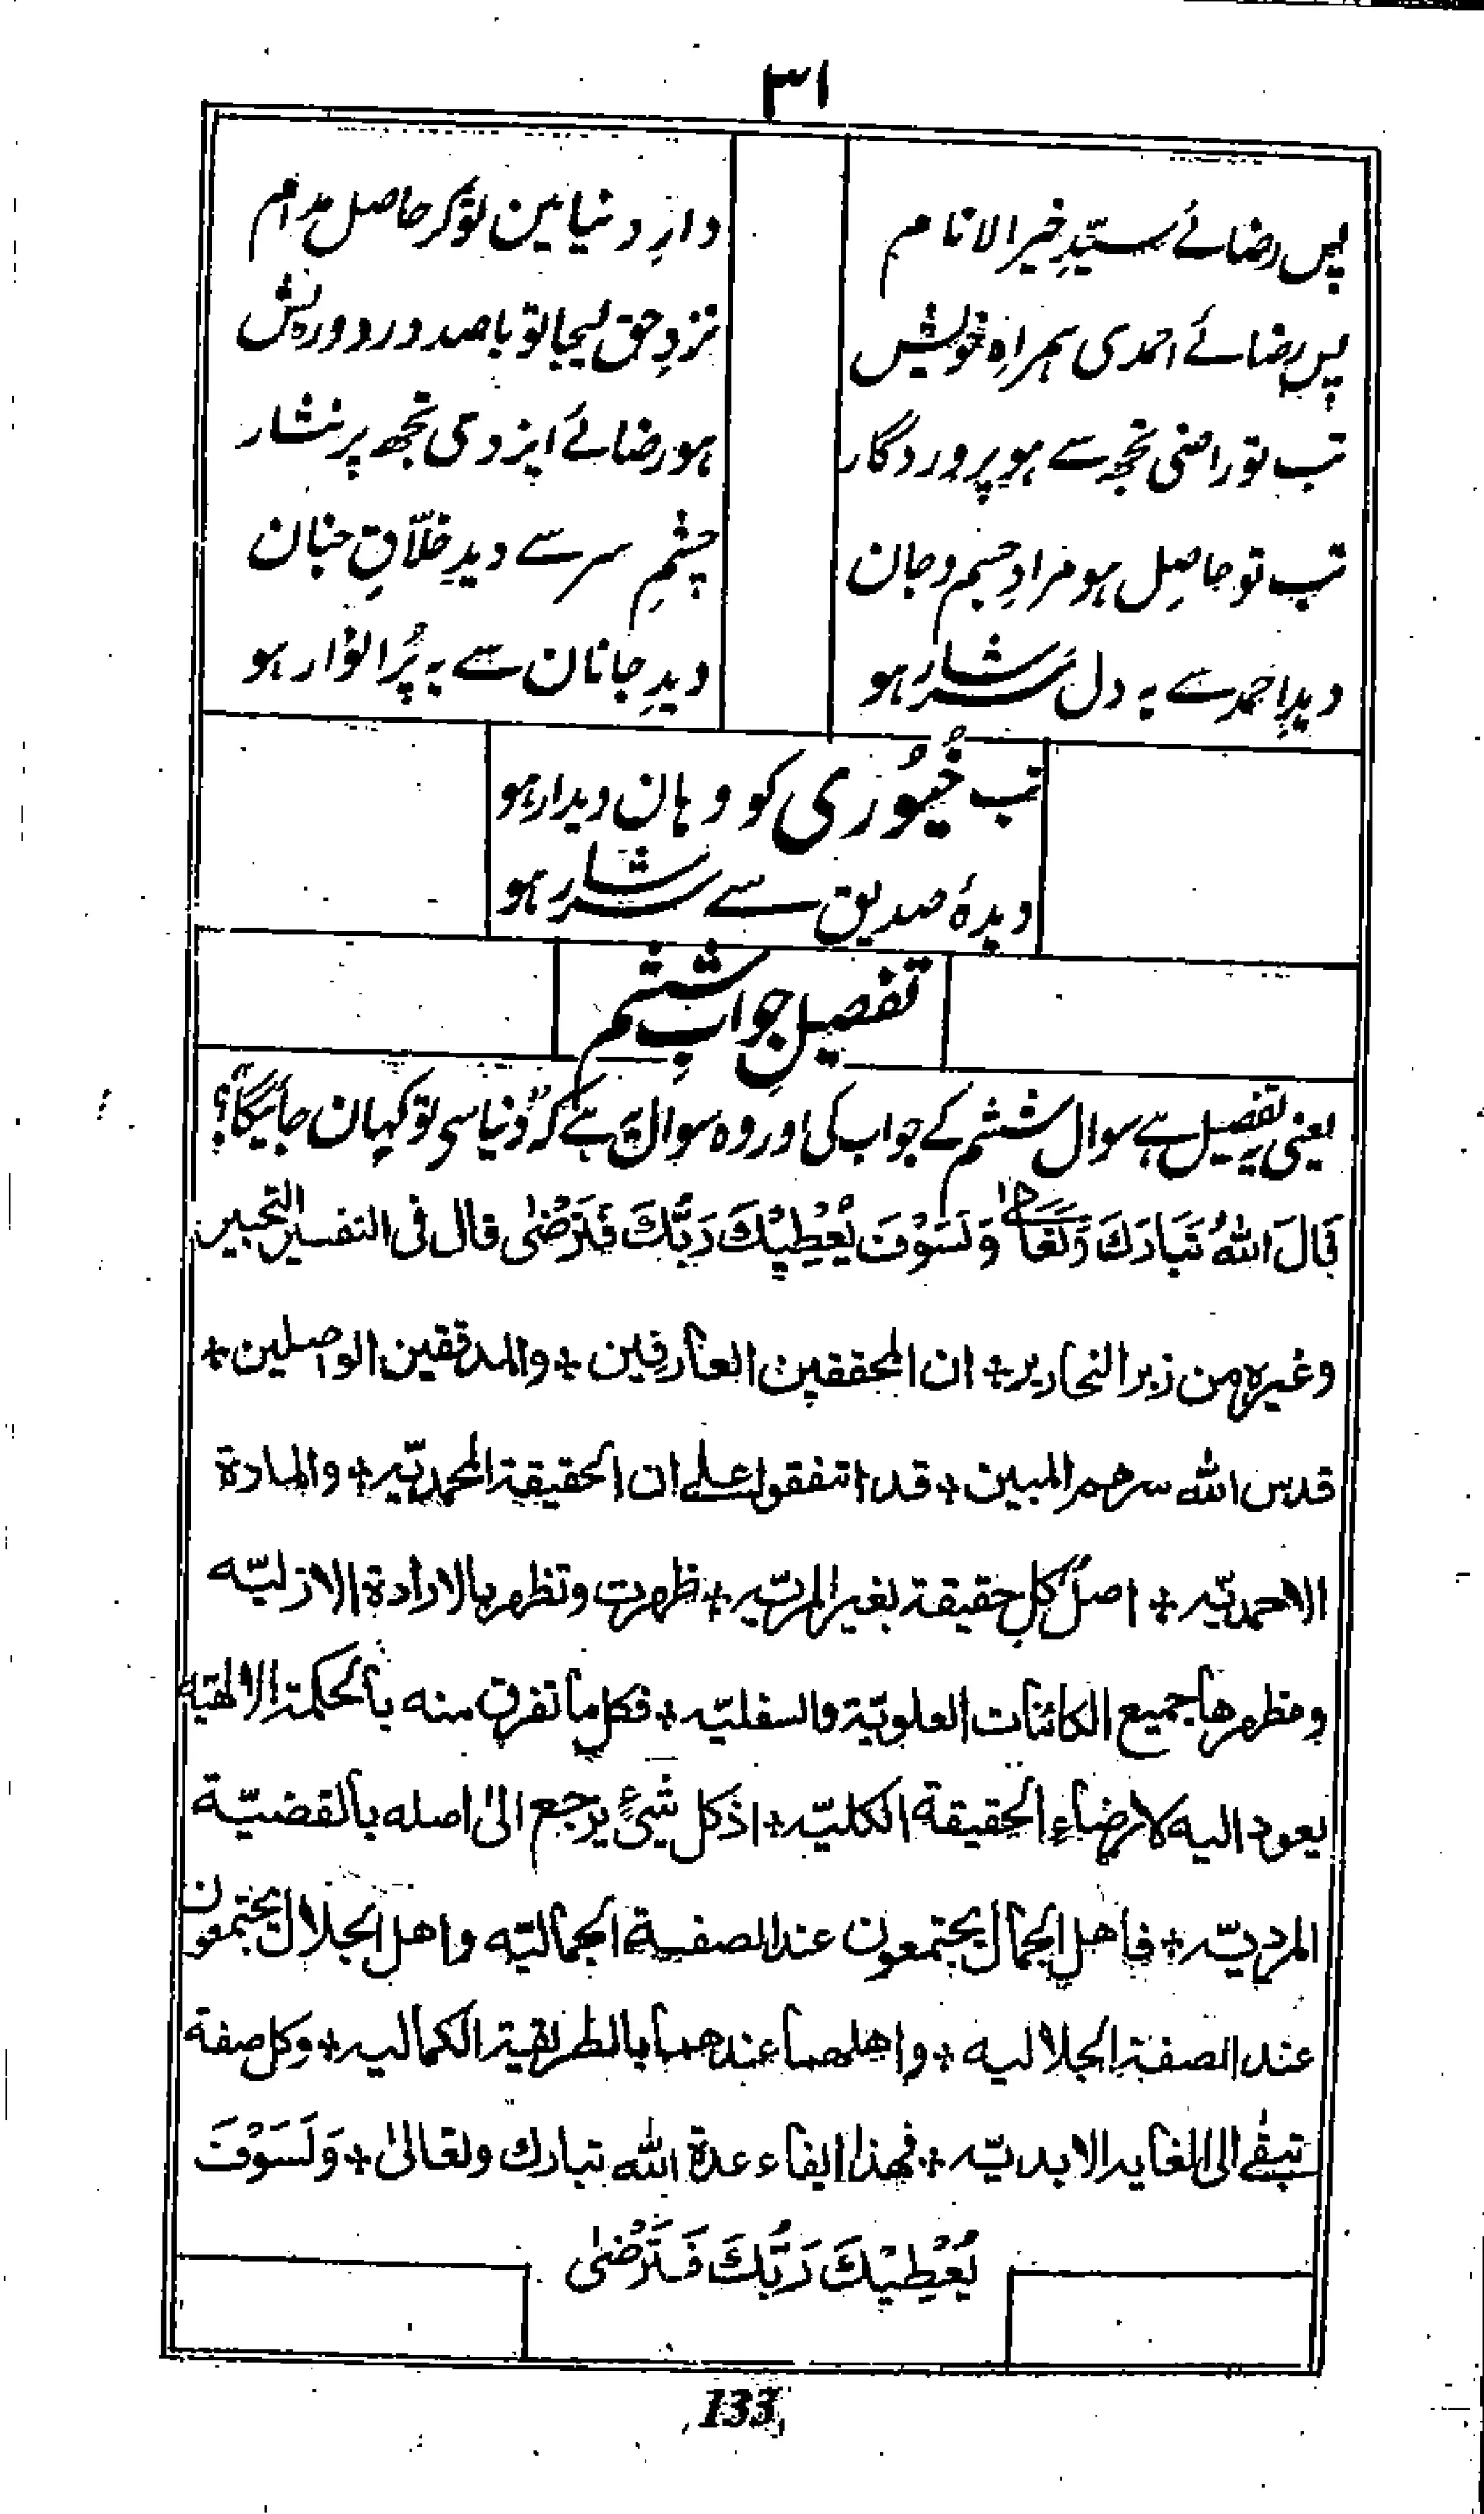 ٣١
پس رضائے سیّدِ خیر الانام دارِ دنیا مین تو کر حاصل مدام
پس رضائے احمدی ہمراہِ خویش نزدِ حق لیجا تو با صد درد و ریش
تب تو راضی تجھ سے ہو پروردگار ہو رضائے ایزدی تجھ پر نثار
تب تو حاصِل ہو مرادِ جسم و جان چشمِ سر سے دیدِ خلّاقِ جنان
دیدِ احمد سے یہ دل سرشار ہو دیدِ جانان سے یہ پُر انوار ہو
تب خُیُوری کو وہان دیدار ہو
دیدۂ صدیق سے سرشار ہو
تفصیلِ جوابِ ششم
یعنی یہ تفصیل ہے سوال ششم کے جواب کی اور وہ سوال یہ ہے کہ دُنیا سی تو کہان جائیگا؟
قَالَ اللهُ تَبَارَكَ وَتَعَالٰى وَلَسَوْفَ يُعْطِيْكَ رَبُّكَ فَتَرْضٰى قال فى التفسير التحبير
وغيره من زبر النحارير + ان المحققين العارفين + والمدققين الواصلين +
قدس الله سرهم المبين + قد اتفقوا على ان الحقيقة المحمديّه + والمادة
الاحمديّه + اصل كل حقيقة بغير المريّه + ظهرت وتظهر بالارادة الازليّه
ومظهرها جميع الكائنات العلويّة والسفليّه + فكل ما تفرق منه بالحكمة الالهيّه
يعود اليه لارضاء الحقيقة الكليّه + اذ كل شيئ يرجع الىٰ اصله بالقضيّة
المرديّه + فاهل الجمال يجتمعون عند الصفة الجماليّه واهل الجلال يجتمعون
عند الصفة الجلاليه + واهلهما عندهما بالطريقة الكماليه + وكل صفة
تبقى الى الغايه الابديّه + فهذا ايفاء عدة الله تبارك وتعالىٰ + وَلَسَوْفَ
يُعْطِيْكَ رَبُّكَ فَتَرْضٰى
133